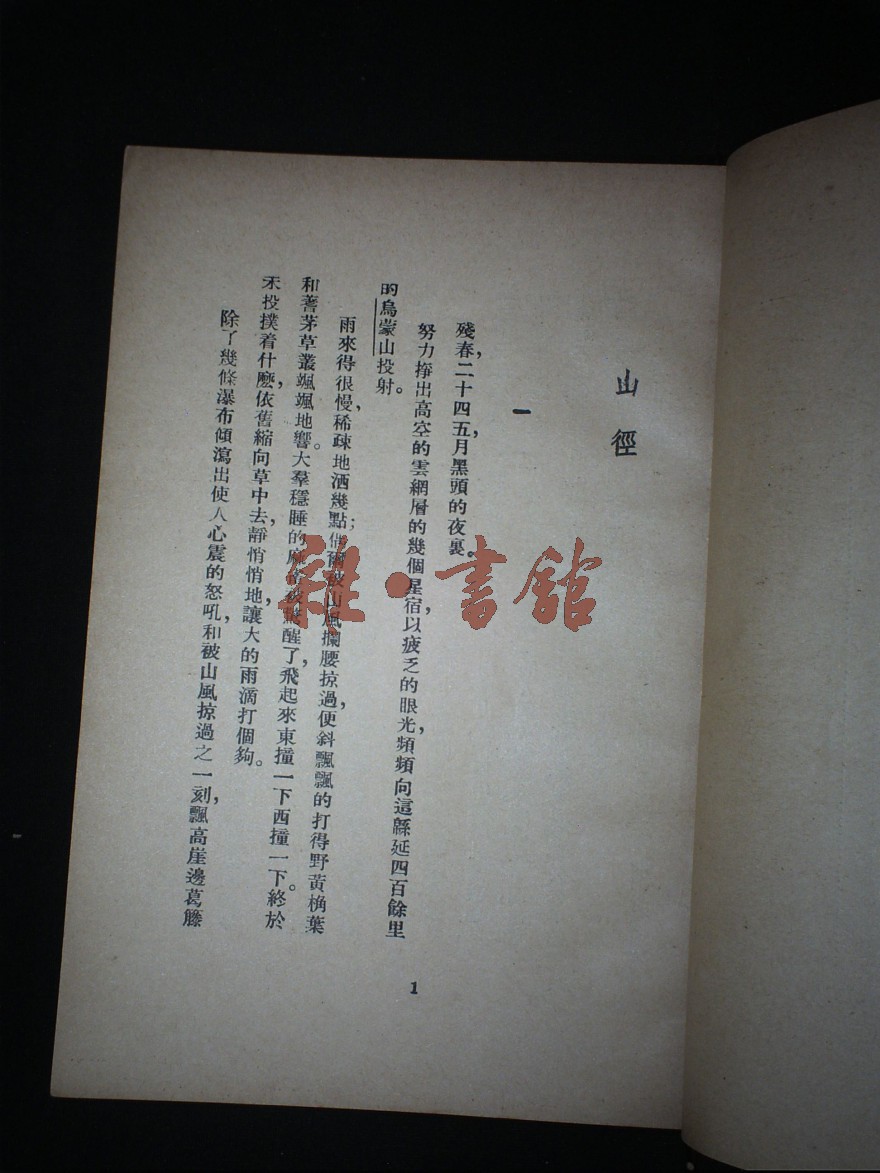 山徑
一
殘春，二十四五月黑頭的夜裏。
努力掙出高空的雲網層的幾個星宿，以疲乏的眼光，頻頻向這緜延四百餘里
的烏蒙山投射。
雨來得很慢，稀疎地洒幾點；偶爾被山風攔腰掠過，便斜飄飄的打得野黃桷葉
和蓍茅草叢颯颯地響。大羣穩睡的麻被驚醒了，飛起來東撞一下西撞一下。終於
未投撲着什麽，依舊縮向草中去，靜悄悄地讓大的雨滴打個夠。
除了幾條瀑布傾瀉出使人心震的怒吼，和被山風掠過之一刻，飄高崖邊葛籐
1
雜·書館